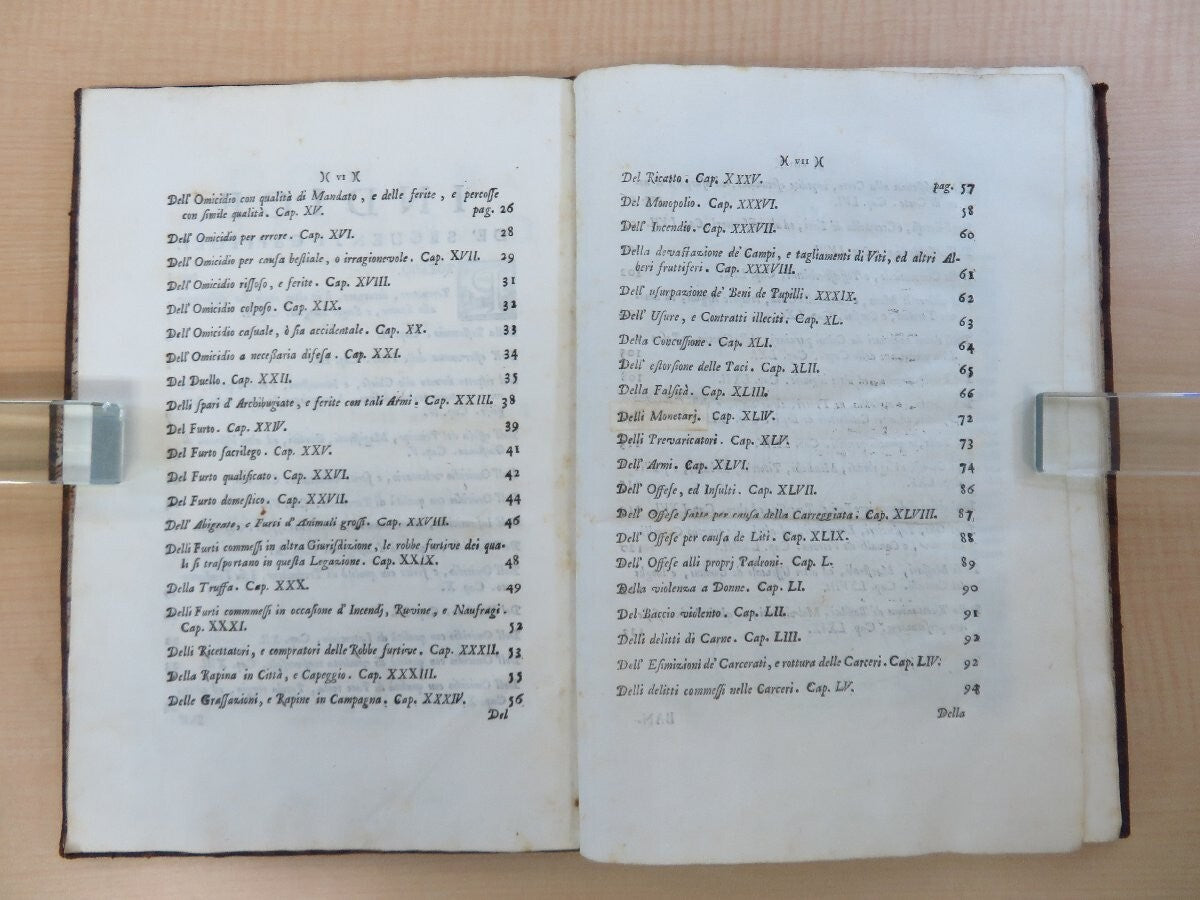 )( VI )(
Dell' Omicidio con qualità di Mandato, e delle ferite, e percosse
con simile qualità. Cap. XV. pag. 26
Dell' Omicidio per errore. Cap. XVI. 28
Dell' Omicidio per causa bestiale, o irragionevole. Cap. XVII. 29
Dell' Omicidio rissoso, e ferite. Cap. XVIII. 31
Dell' Omicidio colposo. Cap. XIX. 32
Dell' Omicidio casuale, ò sia accidentale. Cap. XX. 33
Dell' Omicidio a necessaria difesa. Cap. XXI. 34
Del Duello. Cap. XXII. 35
Delli spari d' Archibugiate, e ferite con tali Armi. Cap. XXIII. 38
Del Furto. Cap. XXIV. 39
Del Furto sacrilego. Cap. XXV. 41
Del Furto qualificato. Cap. XXVI. 42
Del Furto domestico. Cap. XXVII. 44
Dell' Abigeato, e Furti d' Animali grossi. Cap. XXVIII. 46
Delli Furti commessi in altra Giurisdizione, le robbe furtive dei qua-
li si trasportano in questa Legazione. Cap. XXIX. 48
Della Truffa. Cap. XXX. 49
Delli Furti commmessi in occasione d' Incendj, Ruvine, e Naufragi.
Cap. XXXI. 52
Delli Ricettatori, e compratori delle Robbe furtive. Cap. XXXII. 53
Della Rapina in Città, e Capeggio. Cap. XXXIII. 55
Delle Grassazioni, e Rapine in Campagna. Cap. XXXIV. 56
Del
)( VII )(
Del Ricatto. Cap. XXXV. pag. 57
Del Monopolio. Cap. XXXVI. 58
Dell' Incendio. Cap. XXXVII. 60
Della devastazione de' Campi, e tagliamenti di Viti, ed altri Al-
beri fruttiferi. Cap. XXXVIII. 61
Dell' usurpazione de' Beni de Pupilli. XXXIX. 62
Dell' Usure, e Contratti illeciti. Cap. XL. 63
Della Concussione. Cap. XLI. 64
Dell' estorsione delle Taci. Cap. XLII. 65
Della Falsità. Cap. XLIII. 66
Delli Monetarj. Cap. XLIV. 72
Delli Prevaricatori. Cap. XLV. 73
Dell' Armi. Cap. XLVI. 74
Dell' Offese, ed Insulti. Cap. XLVII. 86
Dell' Offese fatte per causa della Carreggiata. Cap. XLVIII. 87
Dell' Offese per causa de Liti. Cap. XLIX. 88
Dell' Offese alli proprj Padroni. Cap. L. 89
Della violenza a Donne. Cap. LI. 90
Del Baccio violento. Cap. LII. 91
Delli delitti di Carne. Cap. LIII. 92
Dell' Esimizioni de' Carcerati, e rottura delle Carceri. Cap. LIV. 92
Delli delitti commessi nelle Carceri. Cap. LV. 94
Della